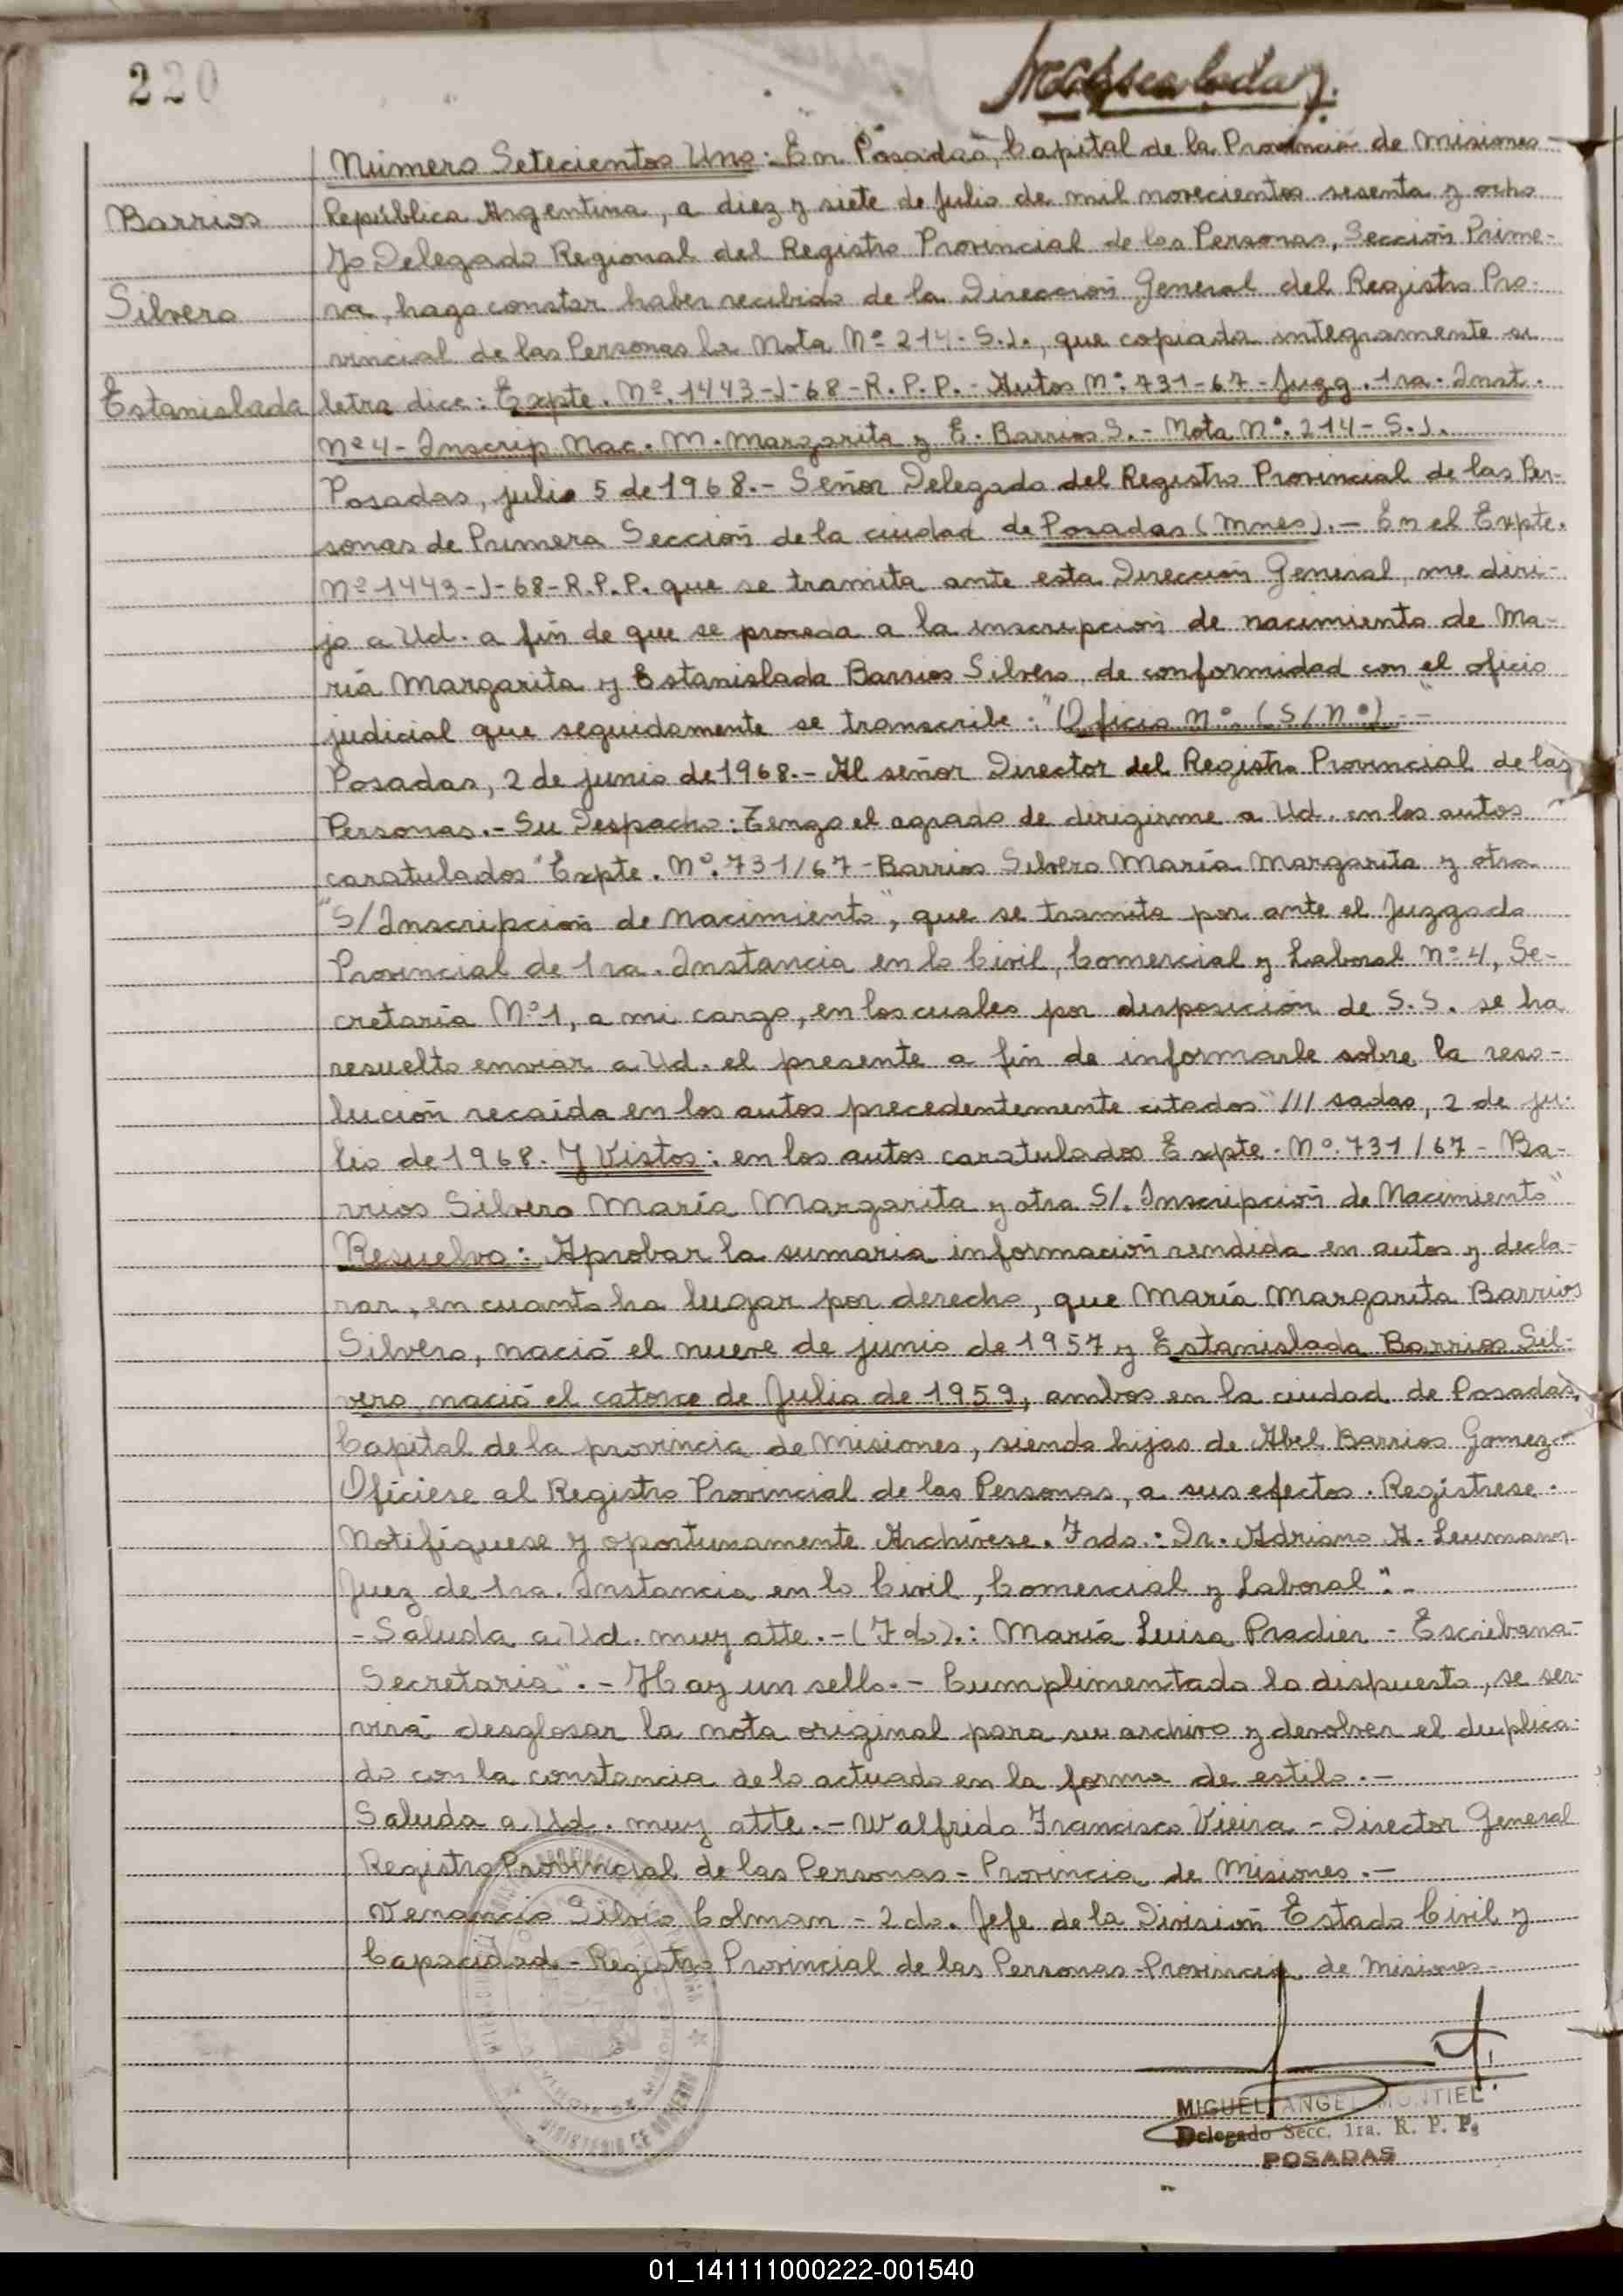 220
Número Setecientos Uno: En Posadas, Capital de la Provincia de Misiones
Barrios
República Argentina, a diez y siete de Julio de mil novecientos sesenta y ocho
Yo Delegado Regional del Registro Provincial de las Personas, Sección Prime-
Silvero
ra, hago constar haber recibido de la Dirección General del Registro Pro-
vincial de las Personas la Nota Nº 214-S.J., que copiada integramente su
Estanislada
letra dice: Expte. Nº. 1443-J-68-R.P.P. - Autos Nº. 731-67-Juzg. 1ra. Inst.
Nº4- Inscrip. Nac. M. Margarita y E. Barrios S. - Nota Nº. 214-S.J.
Posadas, julio 5 de 1968.- Señor Delegado del Registro Provincial de las Per-
sonas de Primera Sección de la ciudad de Posadas (Mnes).- En el Expte.
Nº 1443-J-68-R.P.P. que se tramita ante esta Dirección General, me diri-
jo a Ud. a fin de que se proceda a la inscripción de nacimiento de Ma-
ría Margarita y Estanislada Barrios Silvero, de conformidad con el oficio
judicial que seguidamente se transcribe: "Oficio Nº. (S/Nº) -"
Posadas, 2 de junio de 1968.- Al señor Director del Registro Provincial de las
Personas.- Su Despacho: Tengo el agrado de dirigirme a Ud. en los autos
caratulados "Expte. Nº. 731/67-Barrios Silvero María Margarita y otra
"S/Inscripción de Nacimiento", que se tramita por ante el Juzgado
Provincial de 1ra. Instancia en lo Civil, Comercial y Laboral Nº 4, Se-
cretaría Nº1, a mi cargo, en los cuales por disposición de S.S. se ha
resuelto enviar a Ud. el presente a fin de informarle sobre la reso-
lución recaída en los autos precedentemente citados "/// sadas, 2 de ju-
lio de 1968. Y Vistos: en los autos caratulados Expte. Nº. 731/67 - Ba-
rrios Silvero María Margarita y otra S/. Inscripción de Nacimiento"
Resuelvo: Aprobar la sumaria información rendida en autos y decla-
rar, en cuanto ha lugar por derecho, que María Margarita Barrios
Silvero, nació el nueve de junio de 1957 y Estanislada Barrios Sil-
vero nació el catorce de Julio de 1959, ambos en la ciudad de Posadas,
Capital de la provincia de Misiones, siendo hijas de Abel Barrios Gomez-
Ofíciese al Registro Provincial de las Personas, a sus efectos. Regístrese.
Notifíquese y oportunamente Archívese. Frdo.: Dr. Adriano A. Leumann
Juez de 1ra. Instancia en lo Civil, Comercial y Laboral".-
-Saluda a Ud. muy atte.-(Fdo).: María Luisa Pradier - Escribana-
Secretaria".- Hay un sello.- Cumplimentado lo dispuesto, se ser-
virá desglosar la nota original para su archivo y devolver el duplica-
do con la constancia de lo actuado en la forma de estilo.-
Saluda a Ud. muy atte.- Walfrido Francisco Vieira - Director General
Registro Provincial de las Personas - Provincia de Misiones.-
Venancio Silvio Colman - 2do. Jefe de la División Estado Civil y
Capacidad - Registro Provincial de las Personas - Provincia de Misiones-
MIGUEL ANGEL MONTIEL
Delegado Secc. 1ra. R. P. P.
POSADAS
01_141111000222-001540